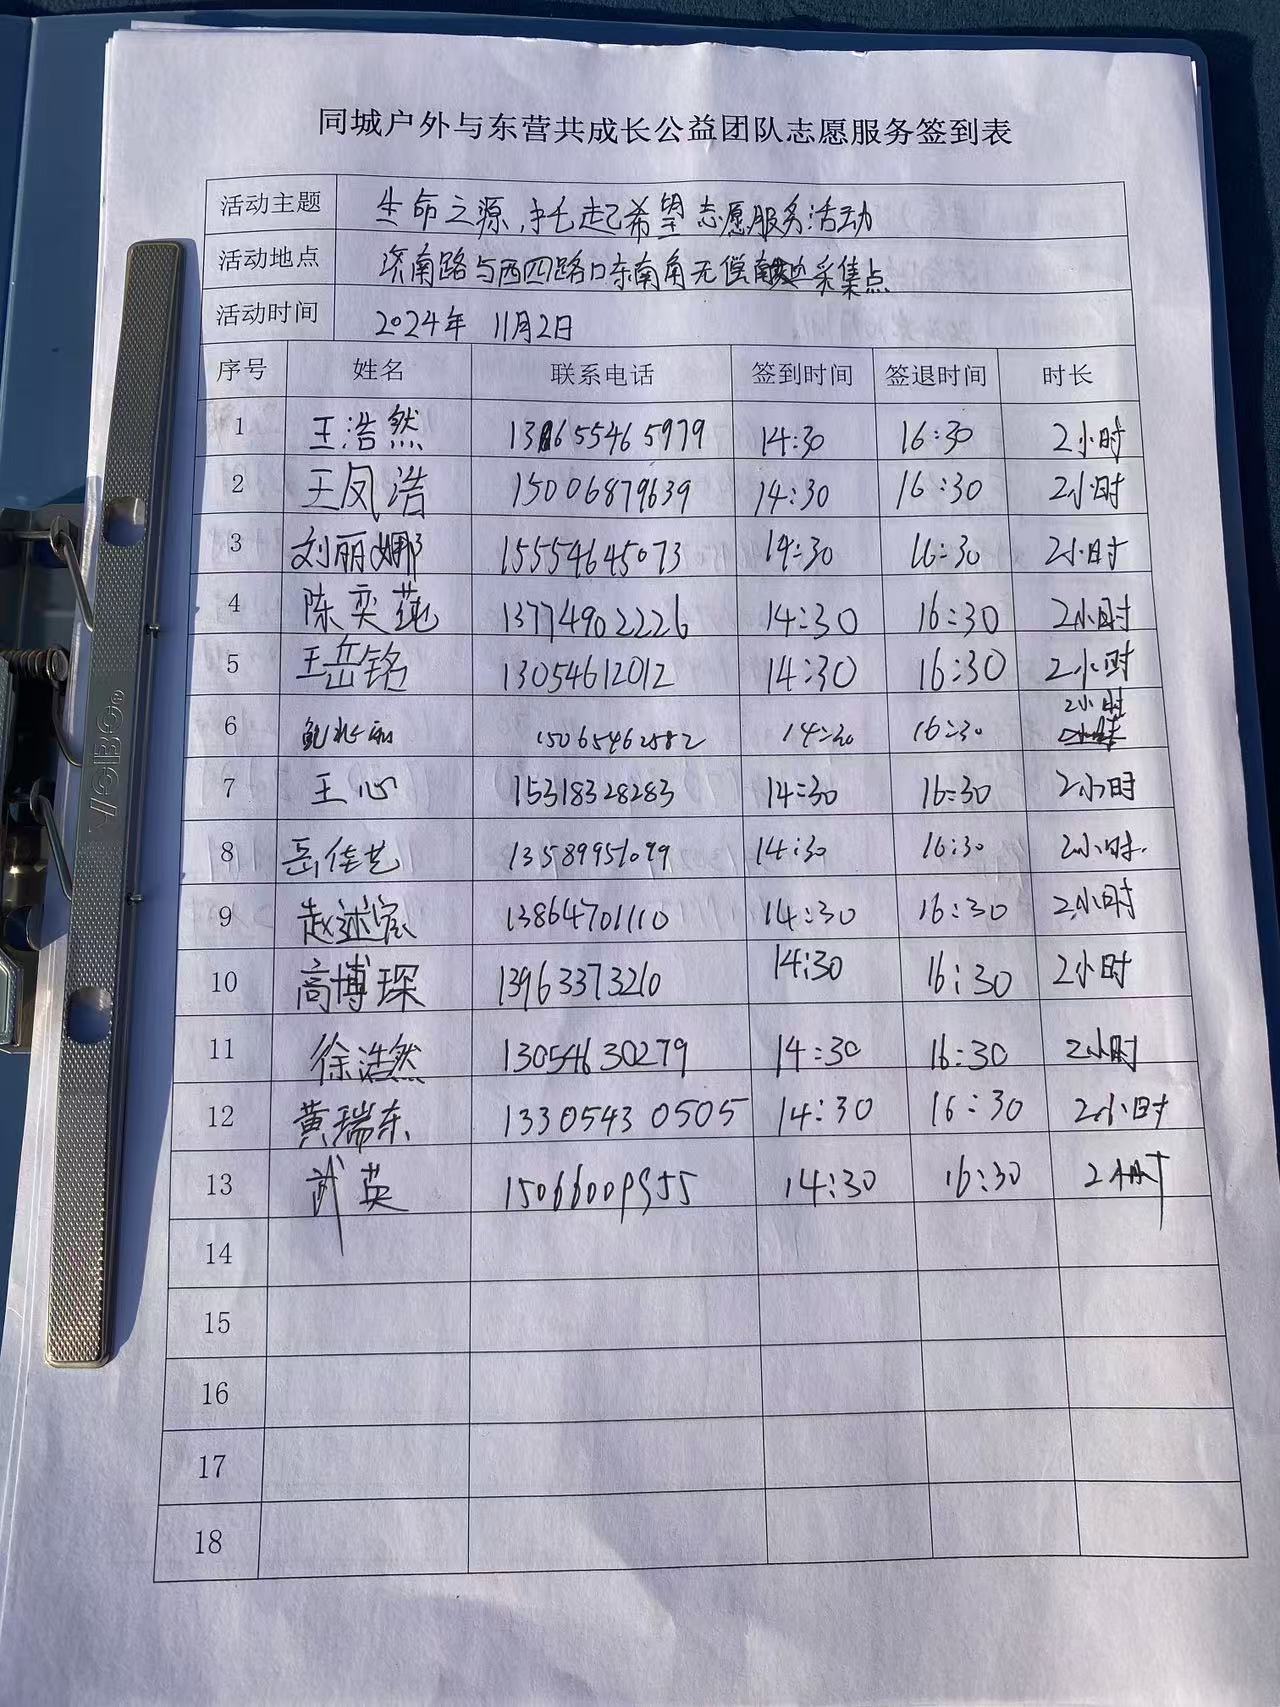 同城户外与东营共成长公益团队志愿服务签到表
活动主题 生命之源,托起希望志愿服务活动
活动地点 济南路与西四路口东南角无偿献血采集点
活动时间 2024年 11月2日
序号 姓名 联系电话 签到时间 签退时间 时长
1 王浩然 13165546 5979 14:30 16:30 2小时
2 王凤浩 15006879639 14:30 16:30 2小时
3 刘丽娜 15554645073 14:30 16:30 2小时
4 陈奕莼 13774902226 14:30 16:30 2小时
5 王岳铭 13054612012 14:30 16:30 2小时
6 15065462582 14:30 16:30 2小时
7 王心 15318328283 14:30 16:30 2小时
8 岳佳艺 13589951099 14:30 16:30 2小时.
9 赵述宸 13864701110 14:30 16:30 2小时
10 高博琛 13963373210 14:30 16:30 2小时
11 徐浩然 13054630279 14:30 16:30 2小时
12 黄瑞东 1330543 0505 14:30 16:30 2小时
13 武英 14:30 16:30 2小时
14
15
16
17
18